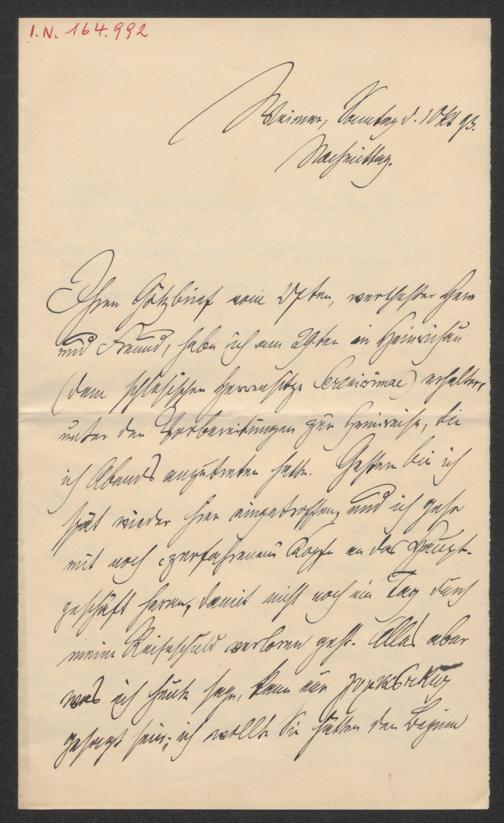 I.N. 164.992
Weimar, Sonntag d. 1 Okt 93.
Nachmittag.
Ihren Götzbrief vom 27ten, werthester Herr
und Freund, habe ich am 29ten in Heinrichau
(dem schlesischen Herrensitze Serenissimae) erhalten,
unter den Vorbereitungen zur Heimreise, die
ich Abends anzutreten hatte. Gestern bin ich
spät wieder hier eingetroffen, und ich gehe
mit noch zerfahrenem Kopfe an das Haupt-
geschäft heran, damit nicht noch ein Tag durch
meine Reiseschuld verloren geht. Alles aber
was ich heute sage, kann nur
gesagt sein; ich wollte Sie hätten den Beginn